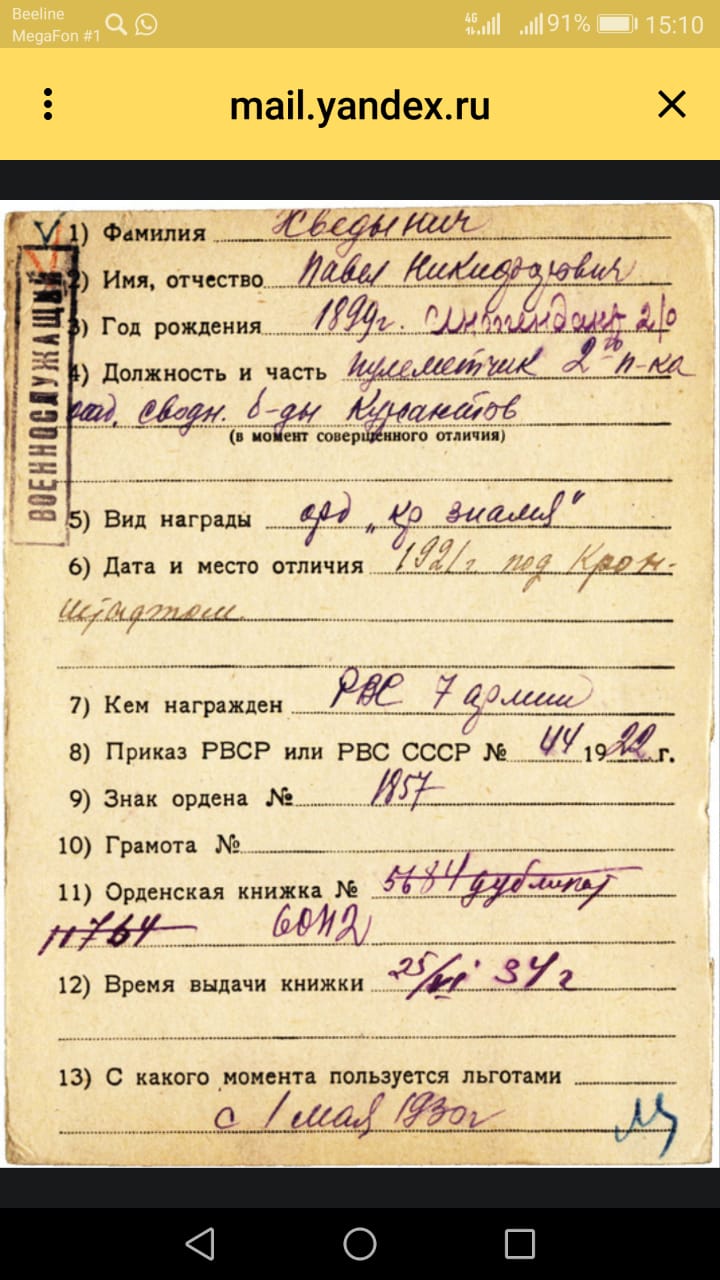 Beeline
MegaFon #1
4G
91%
15:10
mail.yandex.ru
ВОЕННОСЛУЖАЩИЙ
1) Фамилия Хведынич
2) Имя, отчество Павел Никифорович
3) Год рождения 1899г. Интендант 2/о
4) Должность и часть пулеметчик 2го п-ка
сводн. б-ды Курсантов
(в момент совершенного отличия)
5) Вид награды орд „кр знамя"
6) Дата и место отличия 1921г под Крон-
штадтом
7) Кем награжден РВС 7 армии
8) Приказ РВСР или РВС СССР № 44 1922 г.
9) Знак ордена № 1857
10) Грамота №
11) Орденская книжка № 5684 дубликат
11764 6042
12) Время выдачи книжки 25/VI 34г
13) С какого момента пользуется льготами
с 1 мая 1930г